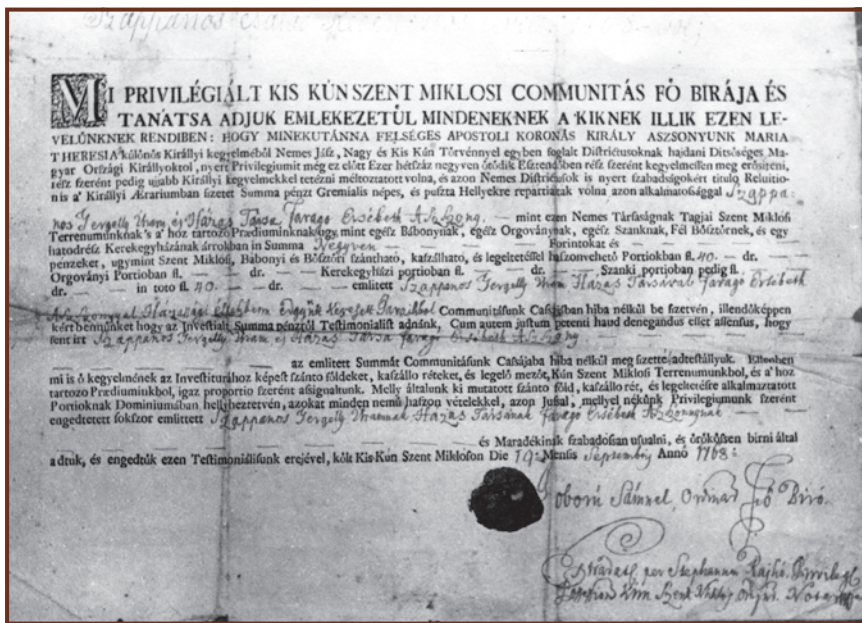 Szappanos család
MI PRIVILÉGIÁLT KIS KÚN SZENT MIKLOSI COMMUNITÁS FÖ BIRÁJA ÉS
TANÁTSA ADJUK EMLEKEZETÚL MINDENEKNEK A KIKNEK ILLIK EZEN LE-
VELÜNKNEK RENDIBEN: HOGY MINEKUTÁNNA FELSÉGES APOSTOLI KORONÁS KIRÁLY ASZSONYUNK MARIA
THERESIA különös Királlyi kegyelméböl Nemes Jász, Nagy és Kis Kún Törvénnyel egyben foglalt Districtusoknak hajdani Ditsöséges Ma-
gyar Országi Királlyoktol, nyert Privilegiumit még ez elött Ezer hétszáz negyven ötödik Esztendöben rész szerént kegyelmessen meg erösiteni,
rész szerént pedig ujjabb Királlyi kegyelmekkel tetézni méltoztatott volna, és azon Nemes Districtusok is nyert szabadságokért titulo Relutio-
nis a' Királlyi Ærariumban fizetet Summa pénzt Gremialis népes, és puszta Hellyekre repartiáltak volna azon alkalmatossággal Szappa-
nos Gergelly Uram és Házas Társa Faragó Ersébeth Aszszony. — mint ezen Nemes Társaságnak Tagjai Szent Miklosi
Terrenumunknak's a' hoz tartozo Prædiuminknak ugy mint egész Bábonynak, egész Orgoványnak, egész Szanknak, Fél Bösztörnek, és egy
hatodrész Kerekegyházának árrokban in Summa Negyven — — Forintokat és — — —
penzeket, ugymint Szent Miklósi, Bábonyi és Bösztöri szántható, kaszálható, és legeltetéssel haszonvehetö Portiokban fl. 40. – dr. —
Orgoványi Portioban fl. — dr. — Kerekegyházi portioban fl. — dr. — Szanki portjoban pedig fl. —
dr. — in toto fl. 40 — dr. — emlitett Szappanos Gergelly Uram Házas Társával Faragó Ersébeth
Aszszonnyal Házassági életekben Communitásunk Cassájában hiba nélkül be fizetvén, illendöképpen
kért bennünket hogy az Investialt Summa pénzröl Testimonialist adnánk, Cum autem justum petenti haud denegandus esset assensus, hogy
fent irt Szappanos Gergelly Uram és Házas Társa Faragó Ersébeth Aszszony. —
az emlitett Summát Communitásunk Cassájaba hiba nélkül meg fizette adtestállyuk. Ellenben
mi is ö kegyelmének az Investiturához képest szánto földeket, kaszállo réteket, és legelö mezöt, Kún Szent Miklosi Terrenumunkbol, és a' hoz
tartozo Prædiuminkbol, igaz proportio szerént assignaltunk. Melly általunk ki mutatott szánto föld, kaszálló rét, és legeltetésre alkalmaztatott
Portioknak Dominiumában hellyheztetvén, azokat minden nemü haszon vételekkel, azon Jussal, mellyel nékünk Privilegiumunk szerént
engedtetett sokszor emlittett Szappanos Gergelly Uramnak Házas Társának Faragó Ersébeth Aszszonynak —
— és Maradékinak szabadossan usuálni, és örökössen birni által
adtuk, és engedtük ezen Testimoniálisunk erejével, költ Kis-Kún Szent Mikloson Die 19: Mensis Septembris Anno 1768:
Sámuel, Fö Biró.
per Stephanum Rajkó. Privileg.
Kún Szent Miklos